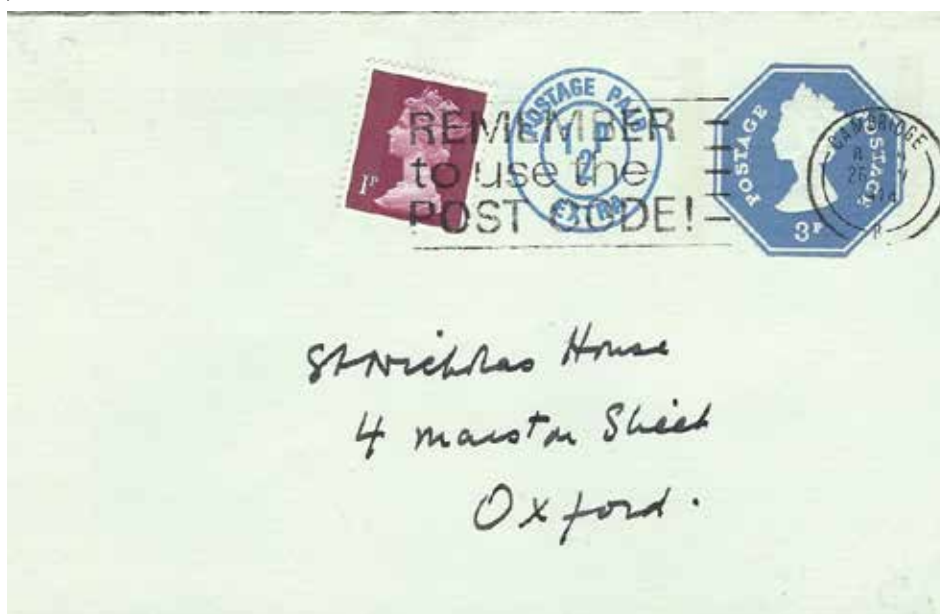 1P
POSTAGE PAID
1 P
2
EXTRA
REMEMBER
to use the
POST CODE!
POSTAGE POSTAGE
3P
CAMBRIDGE
St Nicholas House
4 Marston Street
Oxford.